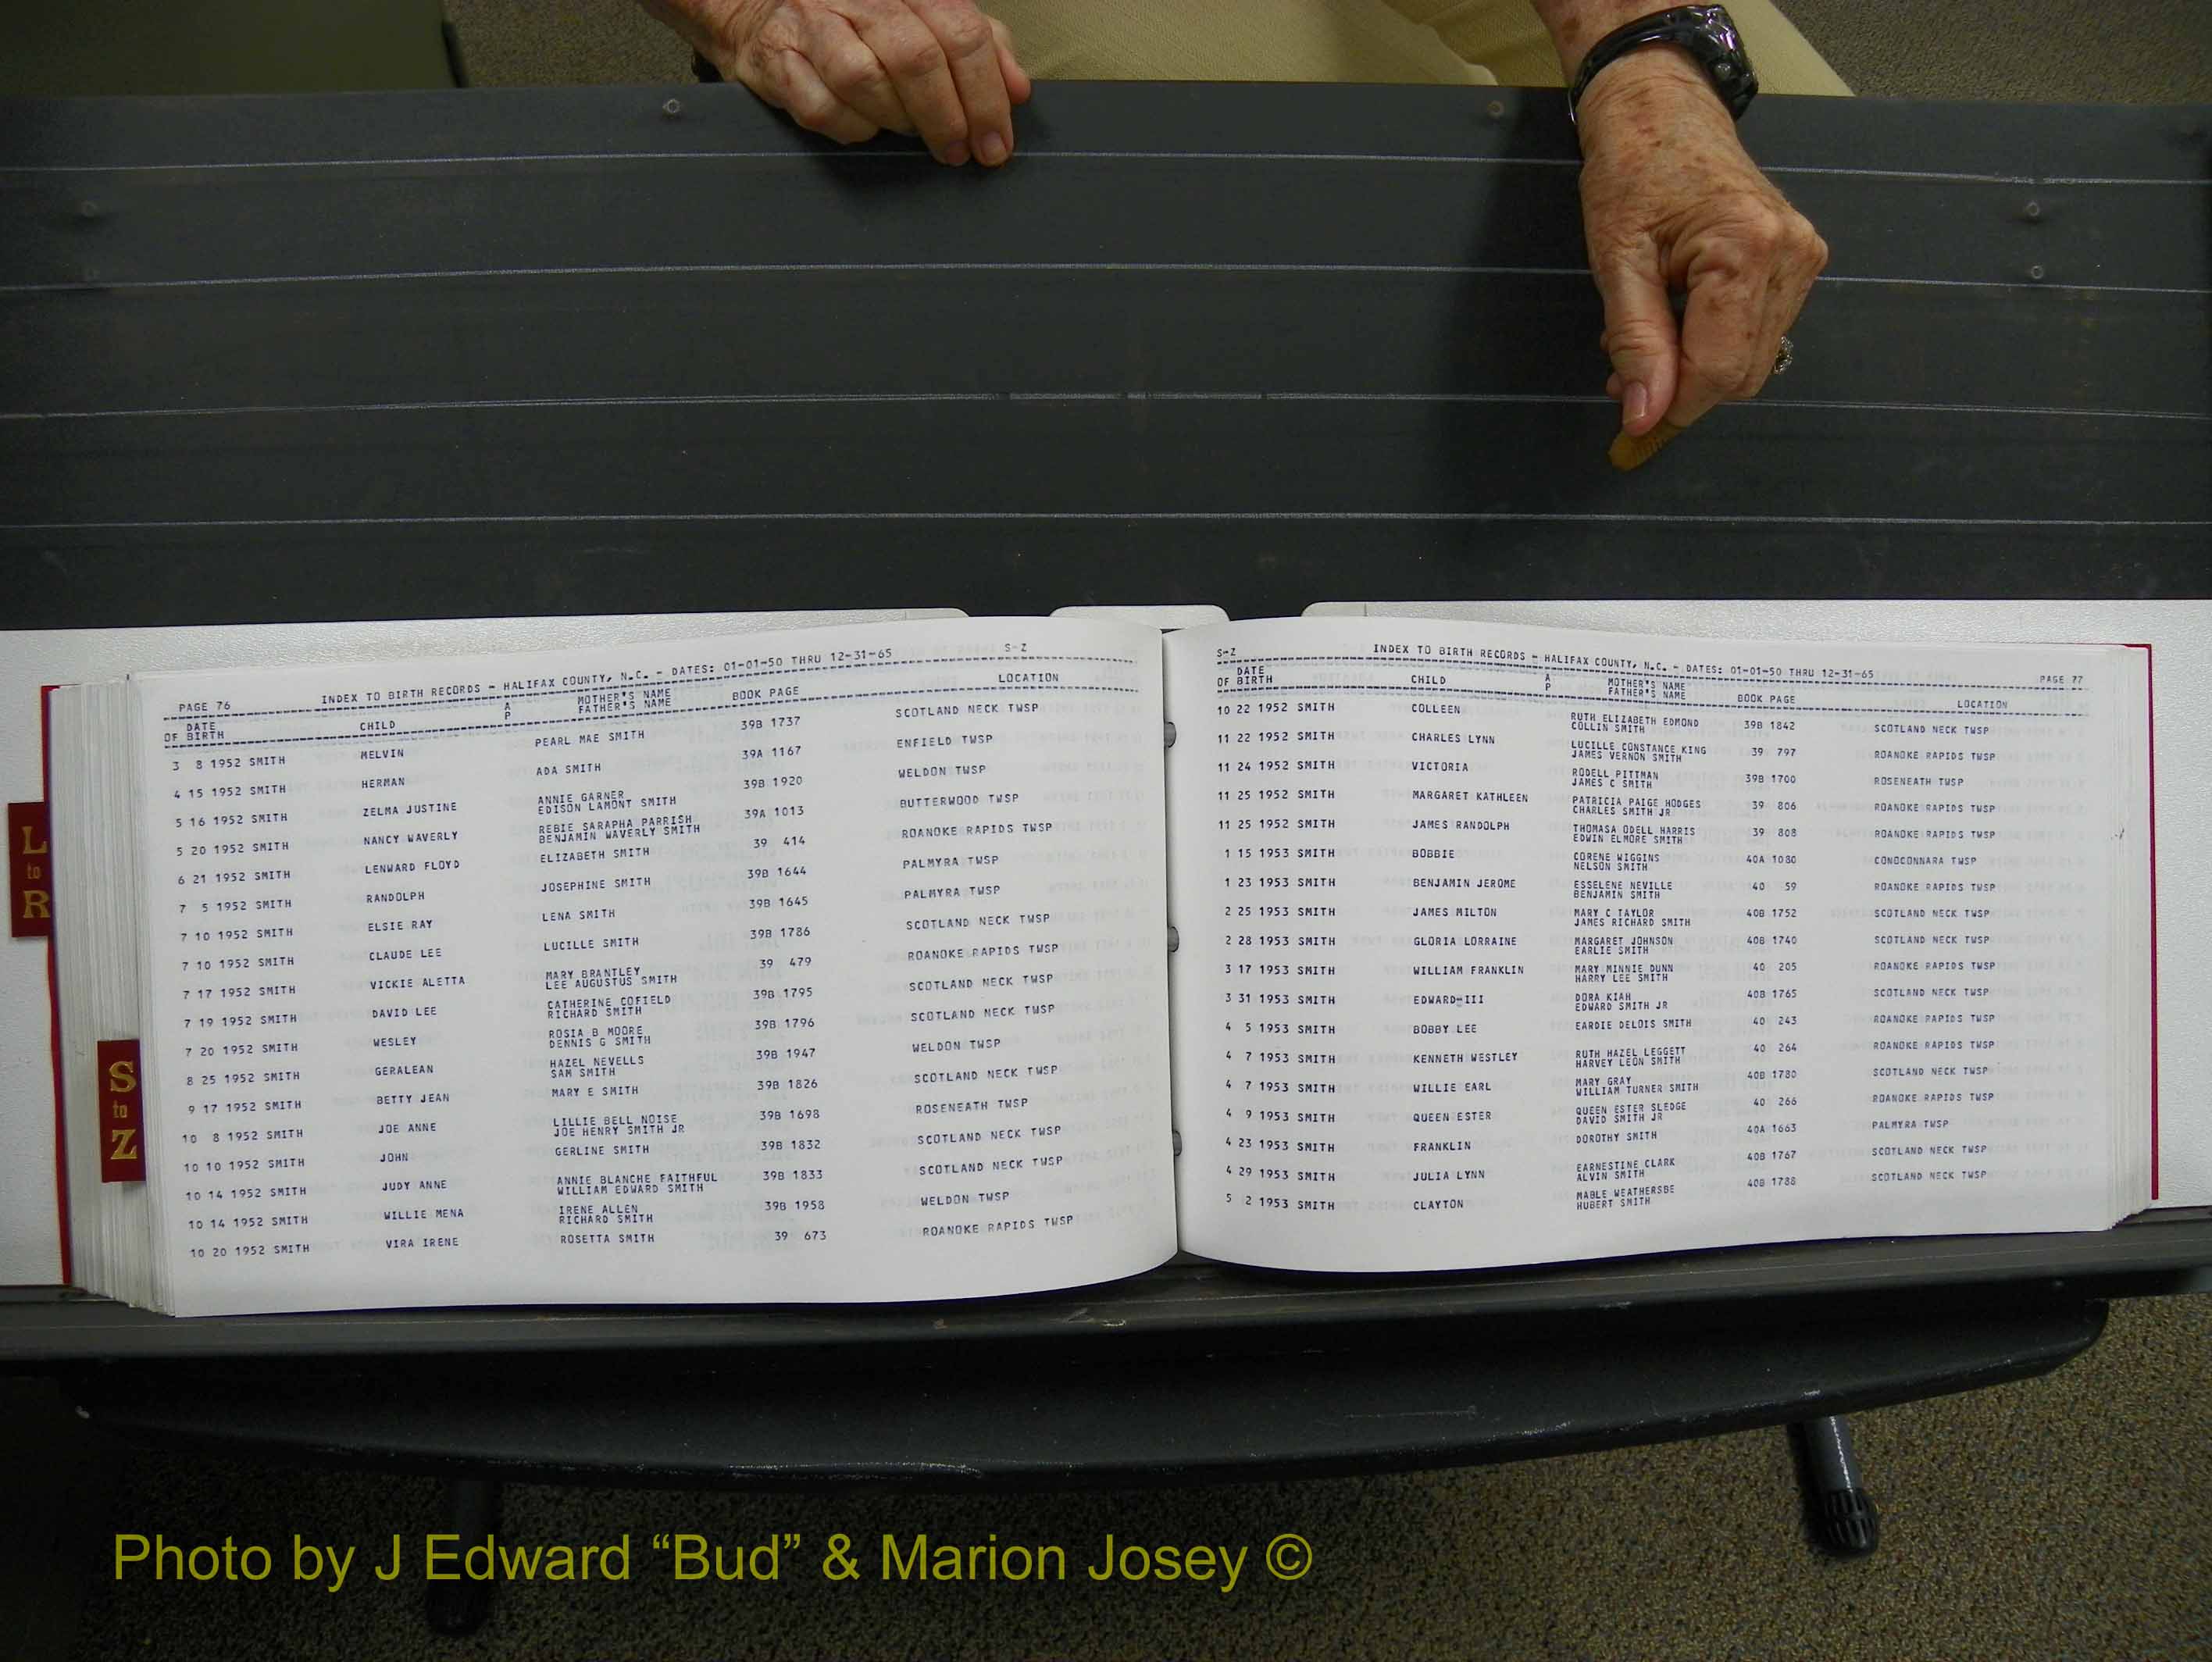 PAGE 76 INDEX TO BIRTH RECORDS - HALIFAX COUNTY, N.C. - DATES: 01-01-50 THRU 12-31-65 S-Z
DATE OF BIRTH CHILD A P MOTHER'S NAME FATHER'S NAME BOOK PAGE LOCATION
3 8 1952 SMITH MELVIN PEARL MAE SMITH 39B 1737 SCOTLAND NECK TWSP
4 15 1952 SMITH HERMAN ADA SMITH 39A 1167 ENFIELD TWSP
5 16 1952 SMITH ZELMA JUSTINE ANNIE GARNER 39B 1920 WELDON TWSP
EDISON LAMONT SMITH
5 20 1952 SMITH NANCY WAVERLY REBIE SARAPHA PARRISH 39A 1013 BUTTERWOOD TWSP
BENJAMIN WAVERLY SMITH
6 21 1952 SMITH LENWARD FLOYD ELIZABETH SMITH 39 414 ROANOKE RAPIDS TWSP
7 5 1952 SMITH RANDOLPH JOSEPHINE SMITH 39B 1644 PALMYRA TWSP
7 10 1952 SMITH ELSIE RAY LENA SMITH 39B 1645 PALMYRA TWSP
7 10 1952 SMITH CLAUDE LEE LUCILLE SMITH 39B 1786 SCOTLAND NECK TWSP
7 17 1952 SMITH VICKIE ALETTA MARY BRANTLEY 39 479 ROANOKE RAPIDS TWSP
LEE AUGUSTUS SMITH
7 19 1952 SMITH DAVID LEE CATHERINE COFIELD 39B 1795 SCOTLAND NECK TWSP
RICHARD SMITH
7 20 1952 SMITH WESLEY ROSIA B MOORE 39B 1796 SCOTLAND NECK TWSP
DENNIS G SMITH
8 25 1952 SMITH GERALEAN HAZEL NEVELLS 39B 1947 WELDON TWSP
SAM SMITH
9 17 1952 SMITH BETTY JEAN MARY E SMITH 39B 1826 SCOTLAND NECK TWSP
10 8 1952 SMITH JOE ANNE LILLIE BELL NOISE 39B 1698 ROSENEATH TWSP
JOE HENRY SMITH JR
10 10 1952 SMITH JOHN GERLINE SMITH 39B 1832 SCOTLAND NECK TWSP
10 14 1952 SMITH JUDY ANNE ANNIE BLANCHE FAITHFUL 39B 1833 SCOTLAND NECK TWSP
WILLIAM EDWARD SMITH
10 14 1952 SMITH WILLIE MENA IRENE ALLEN 39B 1958 WELDON TWSP
RICHARD SMITH
10 20 1952 SMITH VIRA IRENE ROSETTA SMITH 39 673 ROANOKE RAPIDS TWSP
S-Z INDEX TO BIRTH RECORDS - HALIFAX COUNTY, N.C. - DATES: 01-01-50 THRU 12-31-65 PAGE 77
DATE OF BIRTH CHILD A P MOTHER'S NAME FATHER'S NAME BOOK PAGE LOCATION
10 22 1952 SMITH COLLEEN RUTH ELIZABETH EDMOND 39B 1842 SCOTLAND NECK TWSP
COLLIN SMITH
11 22 1952 SMITH CHARLES LYNN LUCILLE CONSTANCE KING 39 797 ROANOKE RAPIDS TWSP
JAMES VERNON SMITH
11 24 1952 SMITH VICTORIA RODELL PITTMAN 39B 1700 ROSENEATH TWSP
JAMES C SMITH
11 25 1952 SMITH MARGARET KATHLEEN PATRICIA PAIGE HODGES 39 806 ROANOKE RAPIDS TWSP
CHARLES SMITH JR
11 25 1952 SMITH JAMES RANDOLPH THOMASA ODELL HARRIS 39 808 ROANOKE RAPIDS TWSP
EDWIN ELMORE SMITH
1 15 1953 SMITH BOBBIE CORENE WIGGINS 40A 1080 CONOCONNARA TWSP
NELSON SMITH
1 23 1953 SMITH BENJAMIN JEROME ESSELENE NEVILLE 40 59 ROANOKE RAPIDS TWSP
BENJAMIN SMITH
2 25 1953 SMITH JAMES MILTON MARY C TAYLOR 40B 1752 SCOTLAND NECK TWSP
JAMES RICHARD SMITH
2 28 1953 SMITH GLORIA LORRAINE MARGARET JOHNSON 40B 1740 SCOTLAND NECK TWSP
EARLIE SMITH
3 17 1953 SMITH WILLIAM FRANKLIN MARY MINNIE DUNN 40 205 ROANOKE RAPIDS TWSP
HARRY LEE SMITH
3 31 1953 SMITH EDWARD-III DORA KIAH 40B 1765 SCOTLAND NECK TWSP
EDWARD SMITH JR
4 5 1953 SMITH BOBBY LEE EARDIE DELOIS SMITH 40 243 ROANOKE RAPIDS TWSP
4 7 1953 SMITH KENNETH WESTLEY RUTH HAZEL LEGGETT 40 264 ROANOKE RAPIDS TWSP
HARVEY LEON SMITH
4 7 1953 SMITH WILLIE EARL MARY GRAY 40B 1780 SCOTLAND NECK TWSP
WILLIAM TURNER SMITH
4 9 1953 SMITH QUEEN ESTER QUEEN ESTER SLEDGE 40 266 ROANOKE RAPIDS TWSP
DAVID SMITH JR
4 23 1953 SMITH FRANKLIN DOROTHY SMITH 40A 1663 PALMYRA TWSP
4 29 1953 SMITH JULIA LYNN EARNESTINE CLARK 40B 1767 SCOTLAND NECK TWSP
ALVIN SMITH
5 2 1953 SMITH CLAYTON MABLE WEATHERSBE 40B 1788 SCOTLAND NECK TWSP
HUBERT SMITH
L
to
R
S
to
Z
Photo by J Edward “Bud” & Marion Josey ©